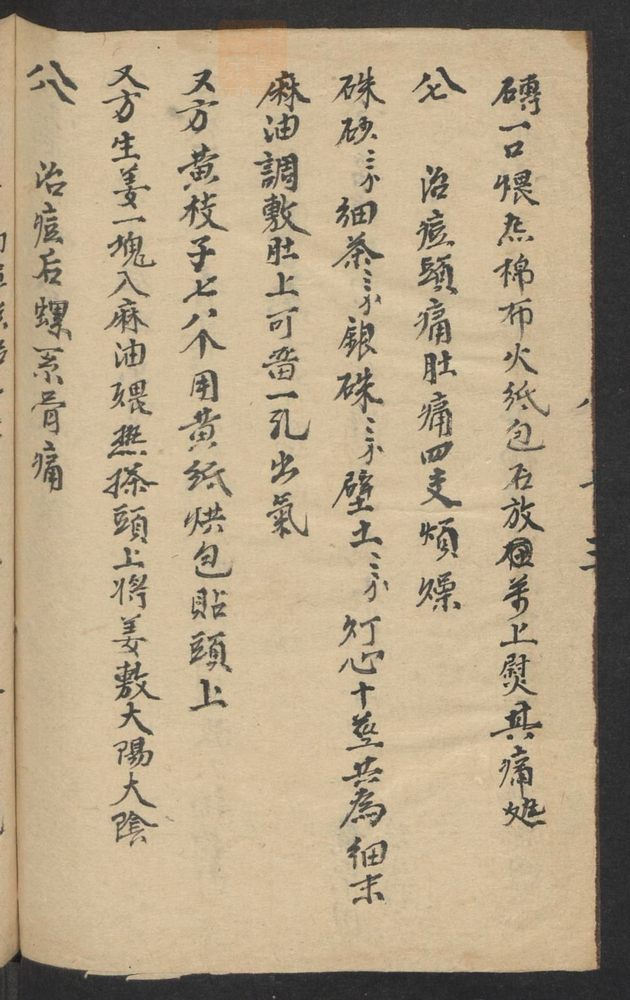 磚一口煨热棉布火紙包石放在羊上熨其痛処
八七 治痘頭痛肚痛四支煩燥
硃砂三分細茶三分銀硃三分壁土三分灯心十莖共為細末
麻油調敷肚上可畱一孔出氣
又方黄枝子七八个用黄紙烘包貼頭上
又方生姜一塊入麻油煨熱搽頭上将姜敷大陽大陰
八八 治痘后螺系骨痛